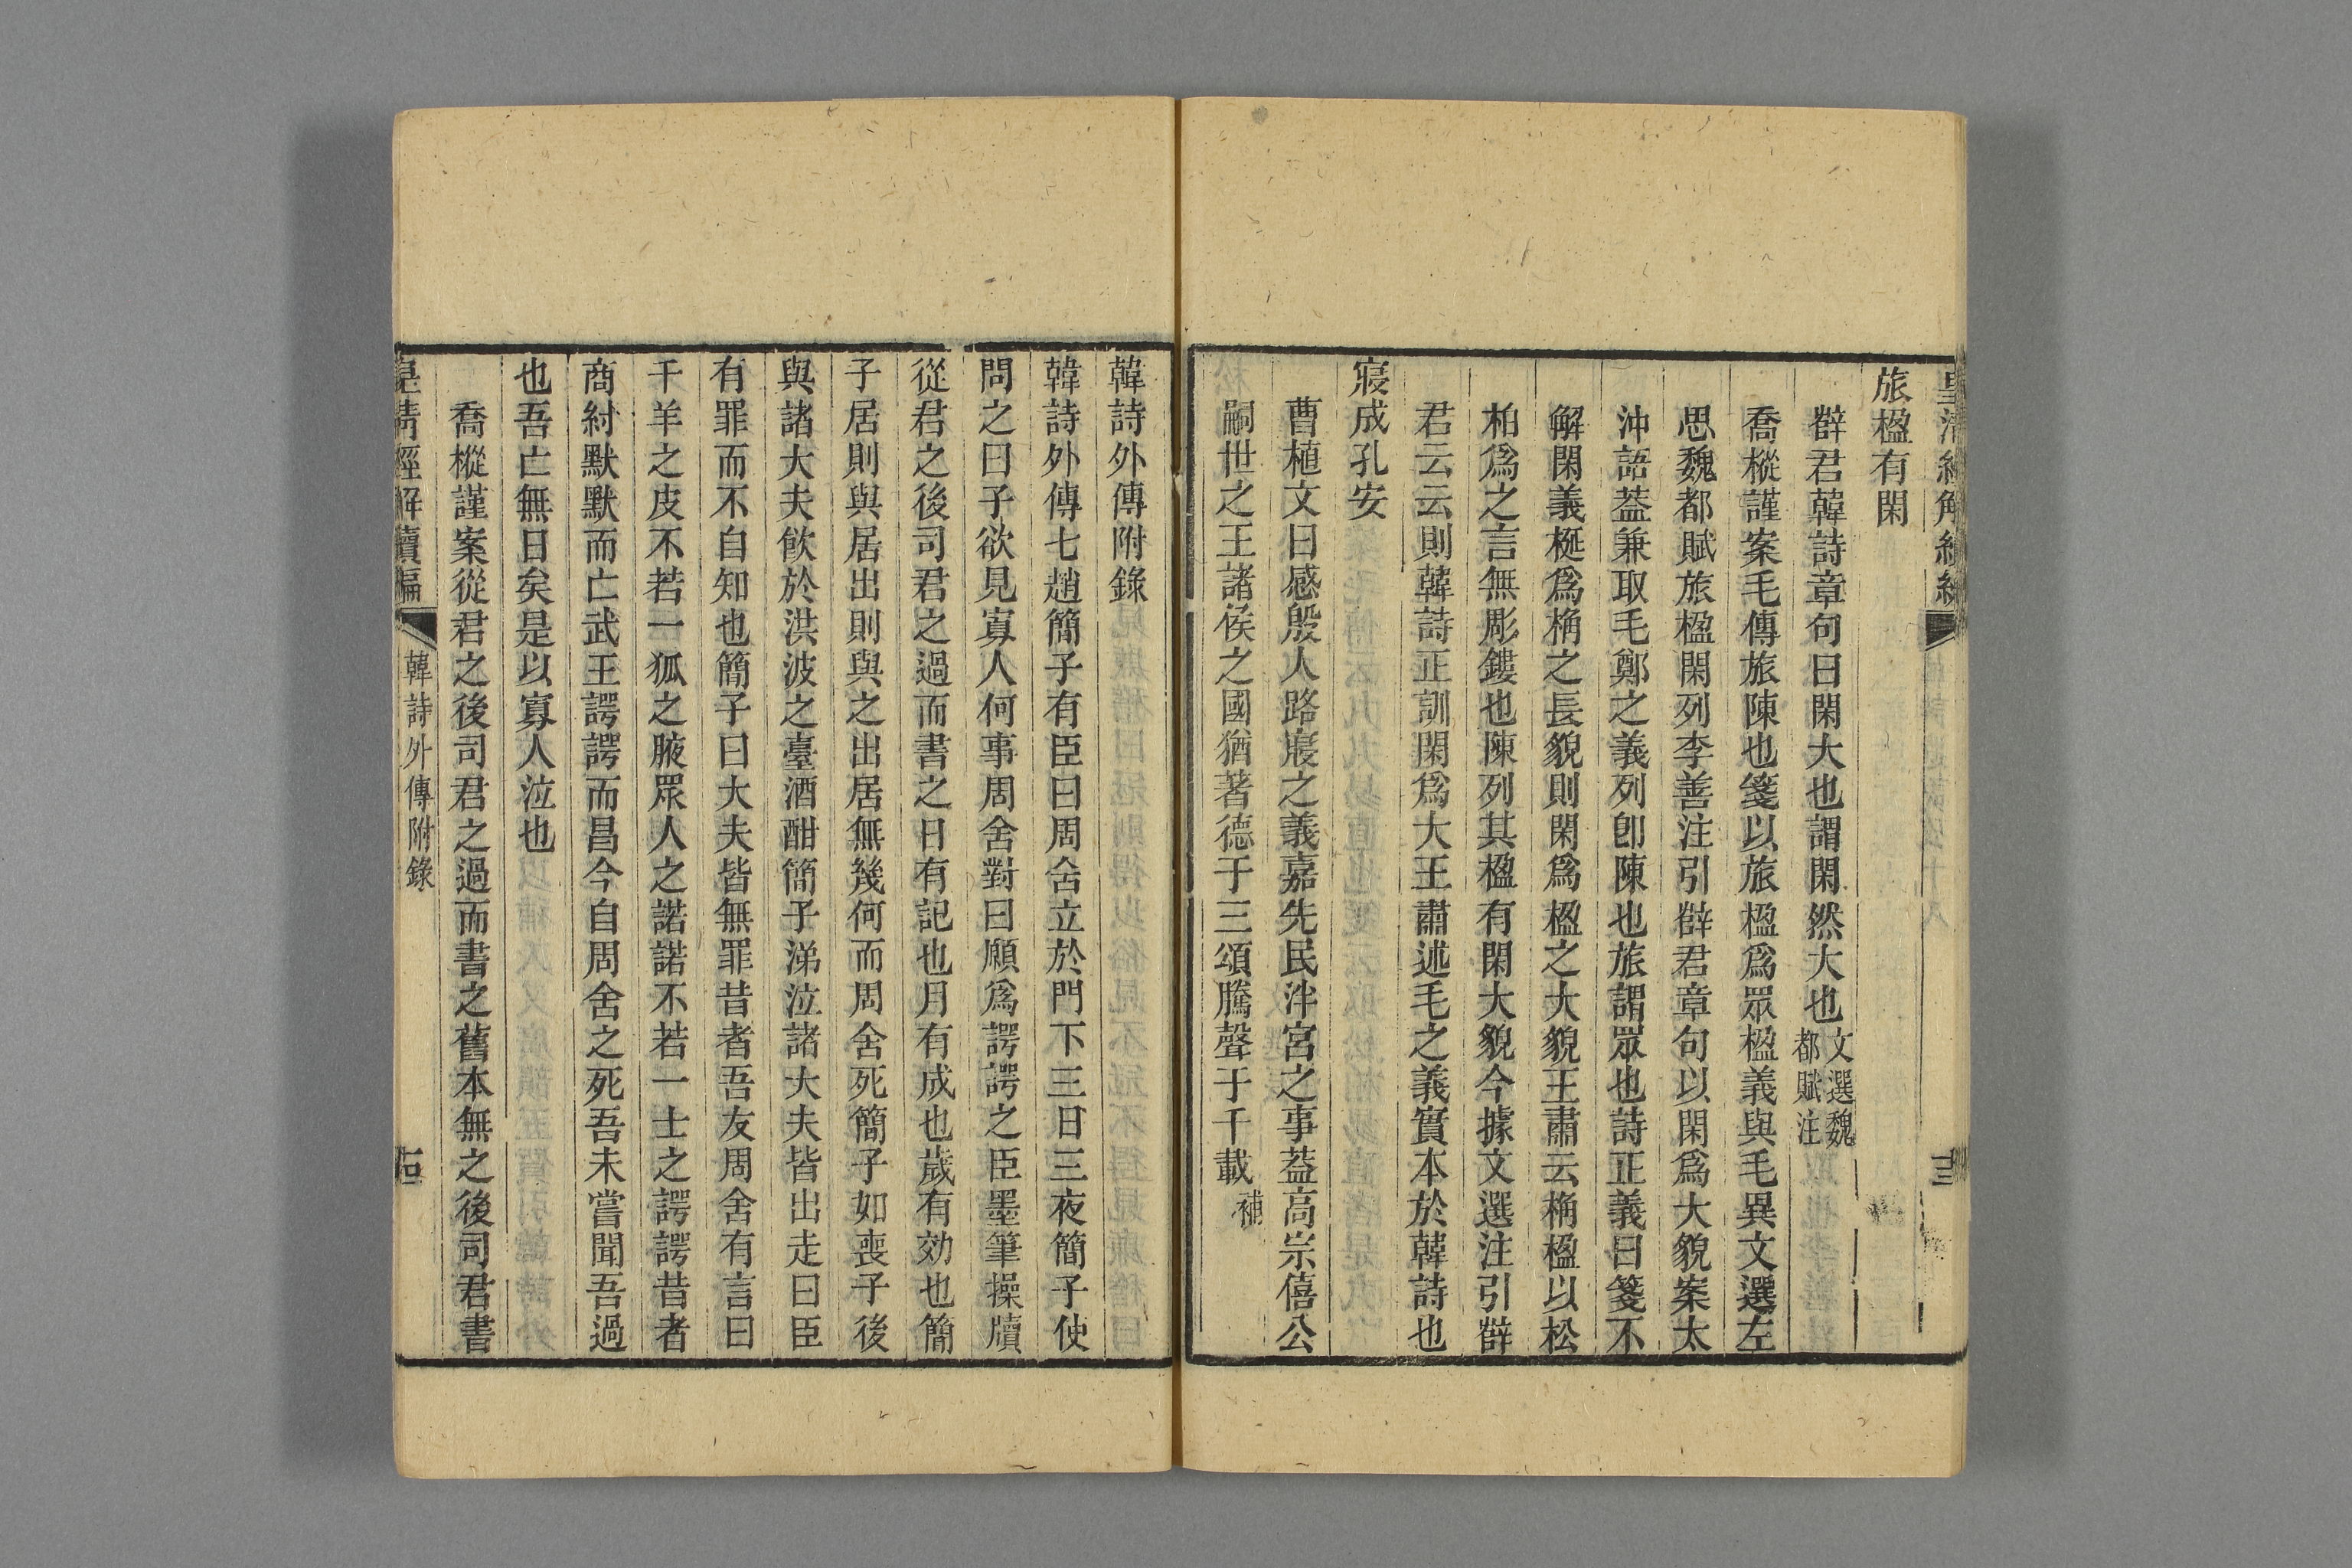 旅楹有閑
辥君韓詩章句曰閑大也謂閑然大也文選魏都賦注
喬樅謹案毛傳旅陳也箋以旅楹爲眾楹義與毛異文選左
思魏都賦旅楹閑列李善注引辥君章句以閑爲大貌案太
沖語葢兼取毛鄭之義列卽陳也旅謂眾也詩正義曰箋不
解閑義梴爲桷之長貌則閑爲楹之大貌王肅云桷楹以松
柏爲之言無彫鏤也陳列其楹有閑大貌今據文選注引辥
君云云則韓詩正訓閑爲大王肅述毛之義實本於韓詩也
寢成孔安
曹植文曰感殷人路寢之義嘉先民泮宮之事葢高宗僖公
嗣世之王諸侯之國猶著德于三頌騰聲于千載補
韓詩外傳附錄
韓詩外傳七趙簡子有臣曰周舍立於門下三日三夜簡子使
問之曰子欲見寡人何事周舍對曰願爲諤諤之臣墨筆操牘
從君之後司君之過而書之日有記也月有成也歲有効也簡
子居則與居出則與之出居無幾何而周舍死簡子如喪子後
與諸大夫飲於洪波之臺酒酣簡子涕泣諸大夫皆出走曰臣
有罪而不自知也簡子曰大夫皆無罪昔者吾友周舍有言曰
千羊之皮不若一狐之腋眾人之諾諾不若一士之諤諤昔者
商紂默默而亡武王諤諤而昌今自周舍之死吾未嘗聞吾過
也吾亡無日矣是以寡人泣也
喬樅謹案從君之後司君之過而書之舊本無之後司君書
皇清經解續編
韓詩外傳附錄